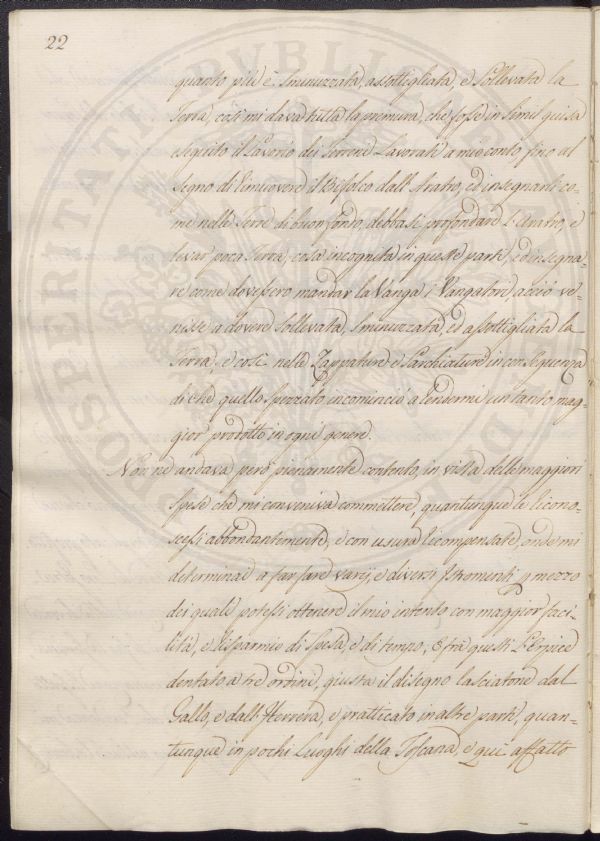 22
quanto più è sminuzzata, assottigliata, e sollevata la
Terra, così mi dava tutta la premura, che fosse in simil guisa
eseguito il Lavorio dei Terreni Lavorati a mio conto fino al
segno di rimuovere il Bifolco dall'Aratro, ed insegnarli co-
me nelle Terre di buon fondo, debbasi profondare l'Aratro, e
levar poca Terra, cosa incognita in queste parti, ed insegna-
re come dovessero mandar la Vanga i Vangatori, acciò ve-
nisse a dovere sollevata, sminuzzata, ed assottigliata la
Terra, e così nelle Zappature e Sarchiature in conseguenza
di che quello spezzato incominciò a rendermi un tanto mag-
gior prodotto in ogni genere.
Non ne andava però pienamente contento, in vista delle maggiori
spese che mi conveniva commettere, quantunque le ricono-
scessi abbondantemente, e con usura ricompensate, onde mi
determinai a far fare varij, e diversi Istromenti p mezzo
dei quali potessi ottenere il mio intento con maggior faci-
lità, e risparmio di spesa, e di tempo; E frà questi L'Erpice
dentato a trè ordini, giusta il disegno lasciatone dal
Gallo, e dall'Herrera, e pratticato in altre parti, quan-
tunque in pochi Luoghi della Toscana, e quì affatto
PROSPERITATI PVBLICAE